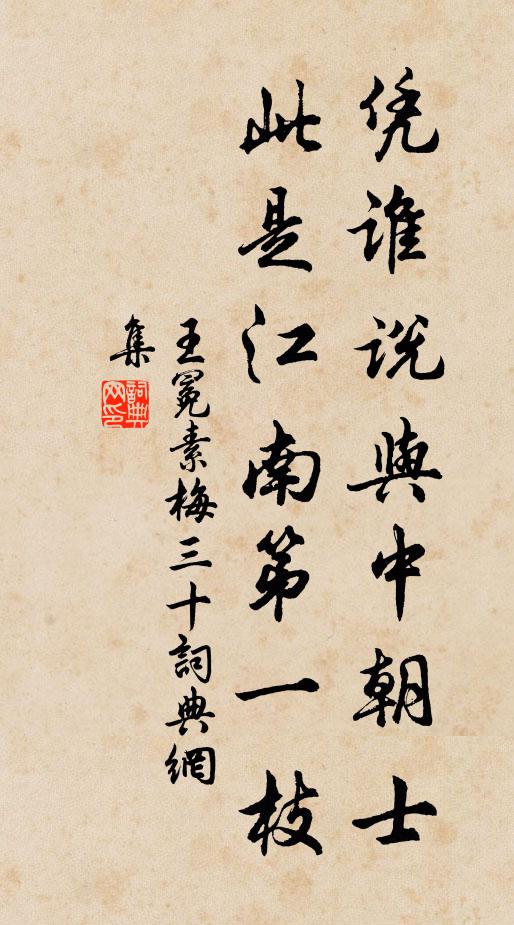 凭谁説與中朝士
此是江南第一枝
王冕素梅三十詞典網
集
詞典
网印